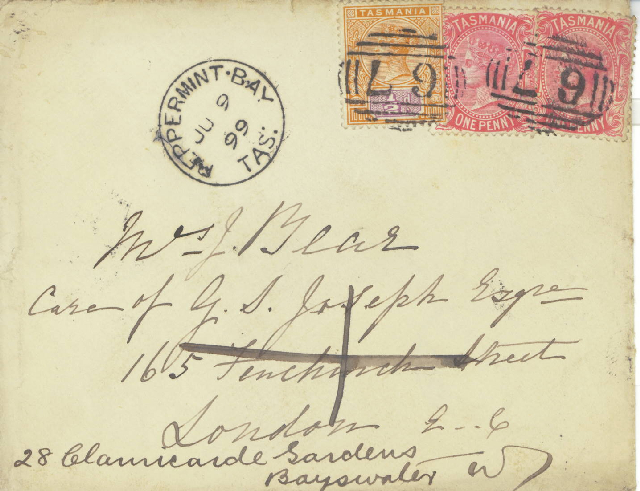 TASMANIA
TASMANIA
TASMANIA
67
67
ONE PENNY
PENNY
PEPPERMINT·BAY
JU 9
99
TAS:
Mrs J. Blear
Care of G. S. Joseph Esqre
165 Fenchurch Street
London E-C
28 Clanricarde Gardens
Bayswater W